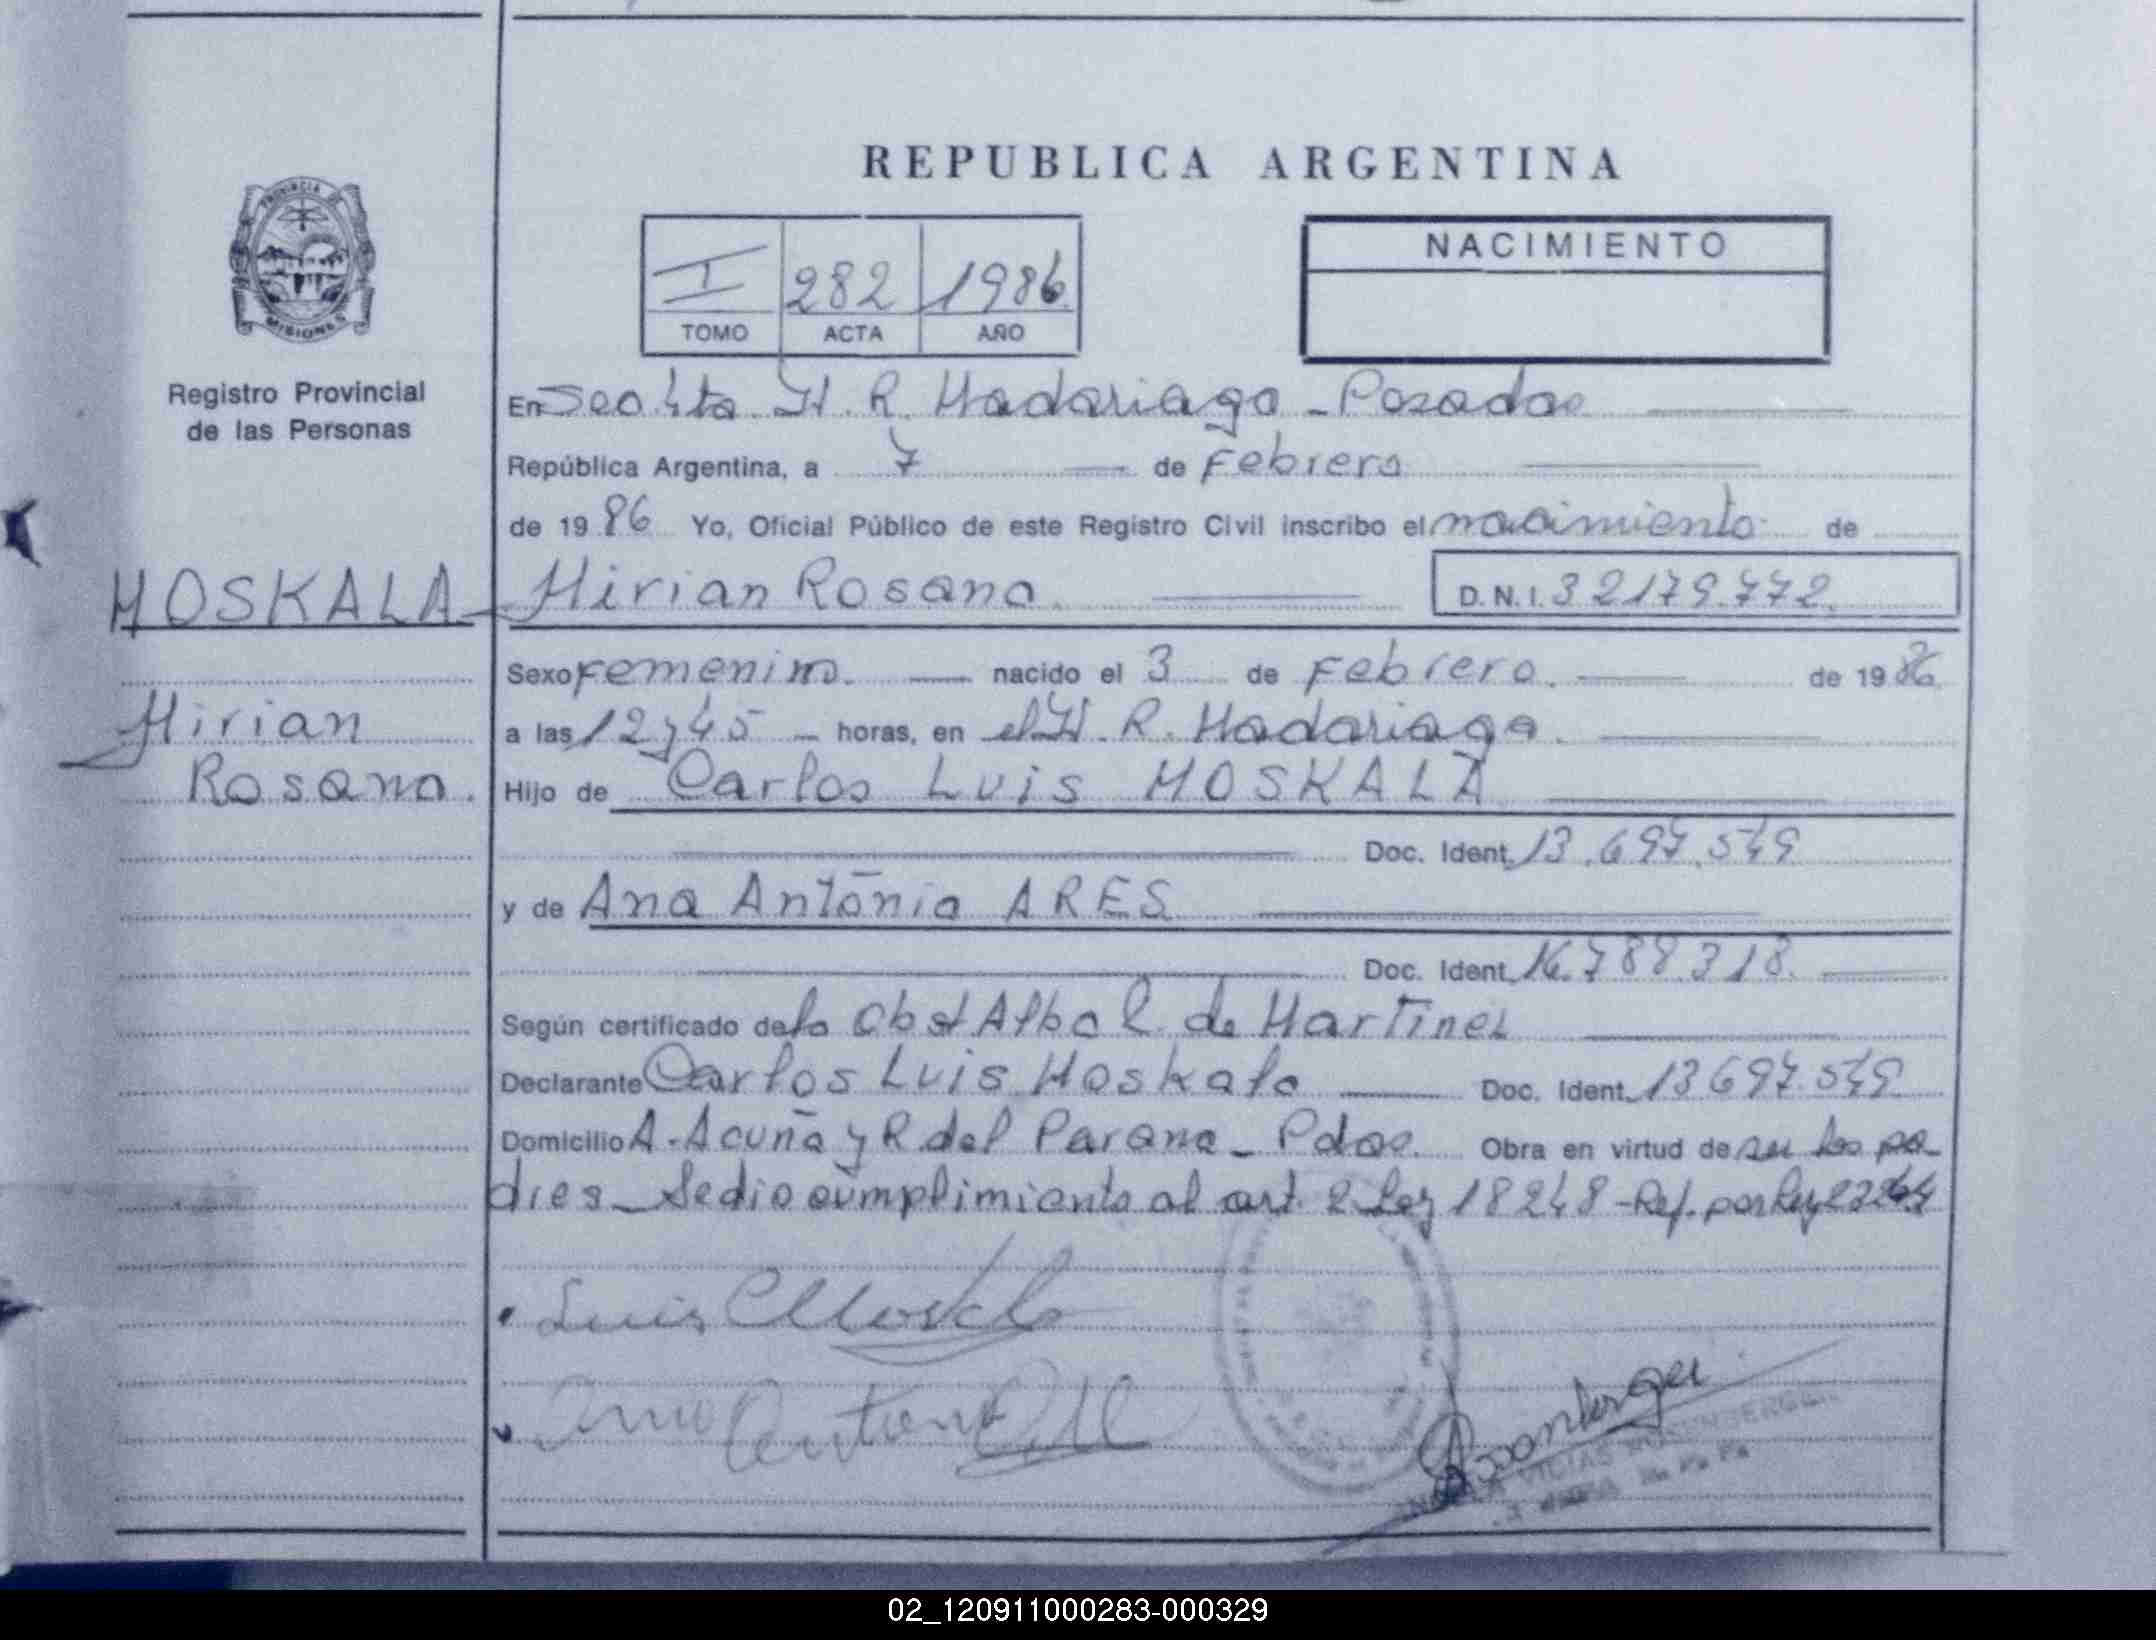 REPUBLICA ARGENTINA
PROVINCIA DE
MISIONES
Registro Provincial
de las Personas
I 282 1986
TOMO ACTA AÑO
NACIMIENTO
En Secc. 4ta H. R. Madariaga - Posadas
República Argentina, a 7 de Febrero
de 1986 Yo, Oficial Público de este Registro Civil inscribo el nacimiento de
MOSKALA Mirian Rosana D.N.I. 32179.772
Sexo Femenino. nacido el 3 de Febrero. de 1986
Mirian
a las 12 y 45 horas, en el H. R. Madariaga.
Rosana.
Hijo de Carlos Luis MOSKALA
Doc. Ident. 13.697.549
y de Ana Antonia ARES
Doc. Ident. 16.788.318.
Según certificado de la Obst Alba de Martinez
Declarante Carlos Luis Moskala Doc. Ident. 13697.549
Domicilio A. Acuña y R del Parana - Pdas. Obra en virtud de ser los pa-
dres - Se dio cumplimiento al art. 2 Ley 18248 - Ref. por Ley
Luis
Ana Antonia
02_120911000283-000329